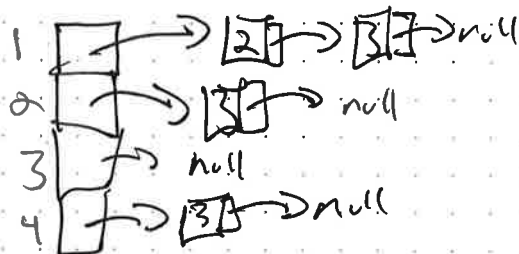 1 2 3 null
2 3 null
3 null
4 3 null